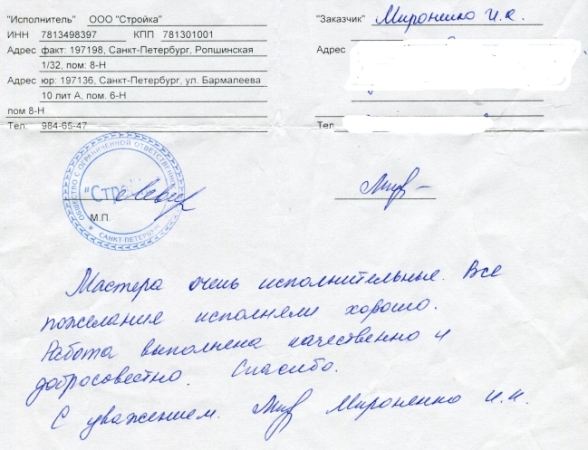 "Исполнитель" ООО "Стройка"
ИНН 7813498397 КПП 781301001
Адрес факт: 197198, Санкт-Петербург, Ропшинская
1/32, пом: 8-Н
Адрес юр: 197136, Санкт-Петербург, ул. Бармалеева
10 лит А, пом. 6-Н
пом 8-Н
Тел: 984-65-47
"Заказчик" Мироненко И.И.
Адрес
Тел
ОБЩЕСТВО С ОГРАНИЧЕННОЙ ОТВЕТСТВЕННОСТЬЮ
"Стро
САНКТ-ПЕТЕРБУРГ
М.П.
Мастера очень исполнительные. Все
пожелания исполняли хорошо.
Работа выполнена качественно и
добросовестно. Спасибо.
С уважением. Мироненко И.И.